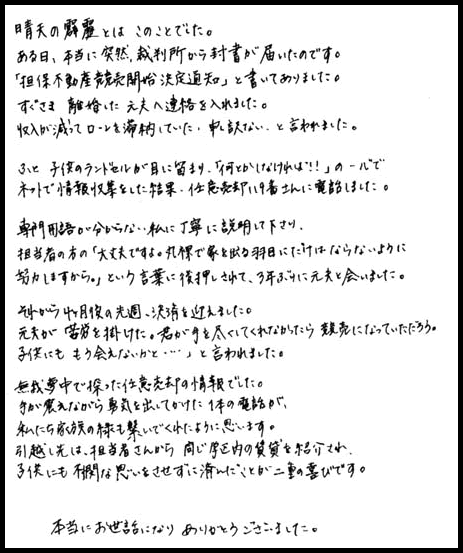 晴天の霹靂とは このことでした。
ある日、本当に突然、裁判所から封書が届いたのです。
「担保不動産競売開始決定通知」と書いてありました。
すぐさま 離婚した元夫へ連絡を入れました。
収入が減ってローンを滞納していた、申し訳ない、と言われました。
ふと 子供のランドセルが目に留まり、「何とかしなければ!!」の一心で
ネットで情報収集をした結果、任意売却119番さんに電話しました。
専門用語が分からない私に丁寧に説明して下さり、
担当者の方の「大丈夫ですよ。丸裸で家を出る羽目にだけはならないように
努力しますから。」という言葉に後押しされて、3年ぶりに元夫と会いました。
それから4ヶ月後の先週、決済を迎えました。
元夫が「苦労を掛けた。君が手を尽くしてくれなかったら 競売になっていただろう。
子供にも もう会えないかと・・・」と言われました。
無我夢中で探った任意売却の情報でした。
手が震えながら勇気を出してかけた 1本の電話が、
私たち家族の縁も繋いでくれたように思います。
引越し先は、担当者さんから 同じ学区内の賃貸を紹介され、
子供にも不憫な思いをさせずに済んだことが二重の喜びです。
本当にお世話になり ありがとうございました。